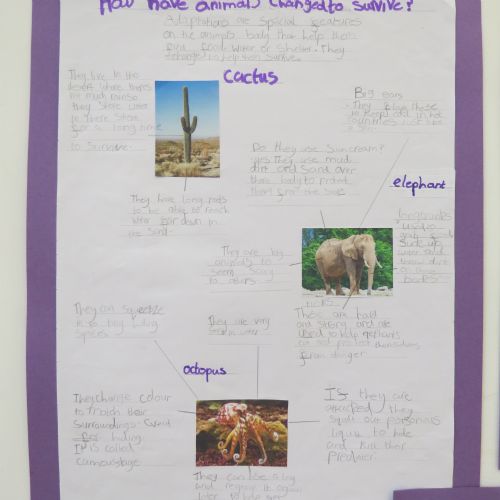 How have animals changed to survive?
Adaptations are special features
on the animals body that help them
find food, water or shelter. They
changed to help them survive.
cactus
They live in the
desert where theres
not much rain so
they store water
for a long time
to survive.
They have long roots
to be able to reach
water far down in
the sand.
Big ears
They
these
to keep cool in hot
countries just like
a fan.
Do they use suncream?
yes they use mud
dirt and sand over
their body to protect
them from the sun
elephant
They are big
animals to
seem scary
to others
used to
suck up
water
throw dirt
on their
bodies
These are hard
and strong and are
used to help elephants
protect themselves
from danger
octopus
They can squeeze
in to tiny
spaces
They are very
They change colour
to match their
surroundings.
for hiding.
It is called
camouflage
They can lose a leg
and regrow it again
later
If they are
attacked they
squirt out poisonous
liquid to hide
and kill their
predator.